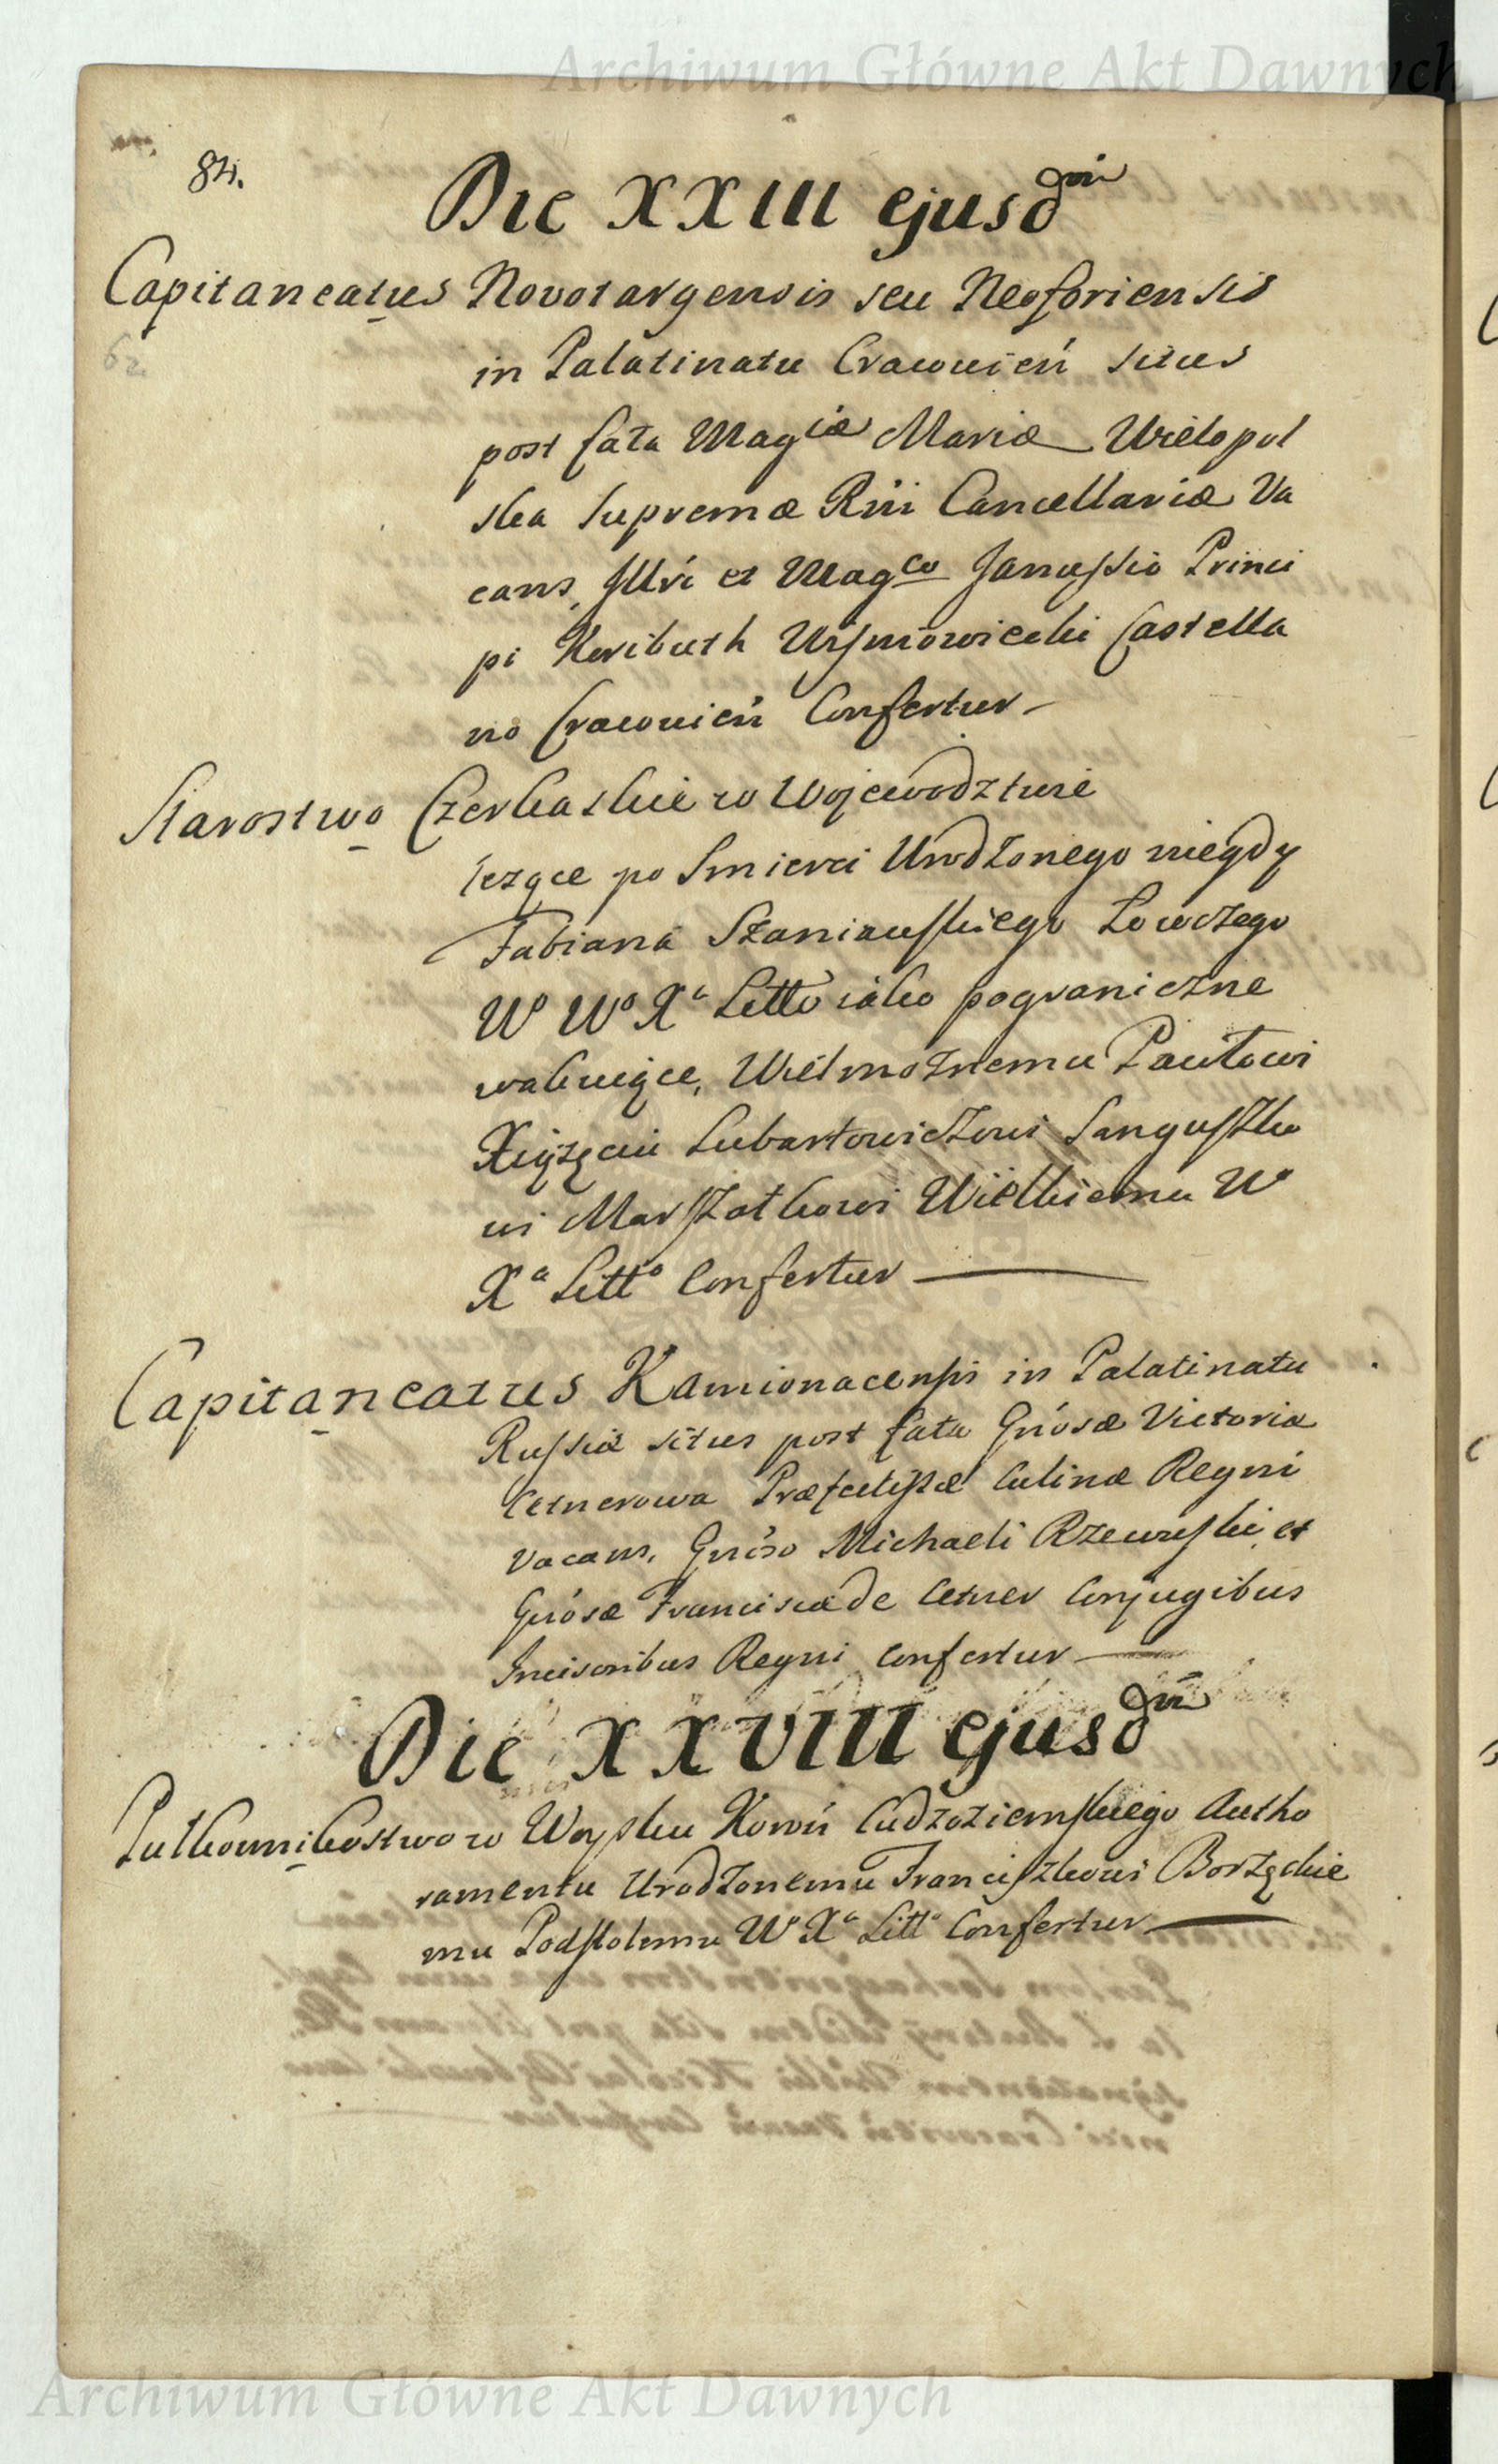 Archiwum Główne Akt Dawnych
84.
Die XXIII ejusd̃m
Capitaneatus Novotargensis seu Neoforiensis
62
in Palatinatu Cracovień situs
post fata Mag^cæ Mariæ Wielopol
ska Supremæ Rñi Cancellariæ Va
cans, Illri et Mag^co Janussio Princi
pi Koributh Wiſniowiecki Castella
no Cracovień Confertur
Starostwo Czerkaskie w Wojewodztwie
lezące po Smierci Urodzonego niegdy
Fabiana Szaniawſkiego Łowczego
W° W° X^a Litt° iako pograniczne
wakuiące, Wielmoznemu Pawłowi
Xiązęciu Lubartowiczowi Sanguſzko
wi Marſzałkowi Wielkiemu W°
X^a Litt° Confertur
Capitaneatus Kamionacenſis in Palatinatu
Ruſsiæ situs post fata Gńosæ Victoria
Cetnerowa Præfectißæ Culinæ Regni
vacans, Gńoso Michaeli Rzewuſki et
Gńosæ Franciscæ de Cetner Conjugibus
Incisoribus Regni Confertur
Die XXVIII ejusd̃m
Pułkownikostwo w Woysku Koroń Cudzoziemſkiego Autho
ramentu Urodzonemu Franciſzkowi Borzęckie
mu Podſtolemu W° X^a Litt° Confertur
Archiwum Główne Akt Dawnych